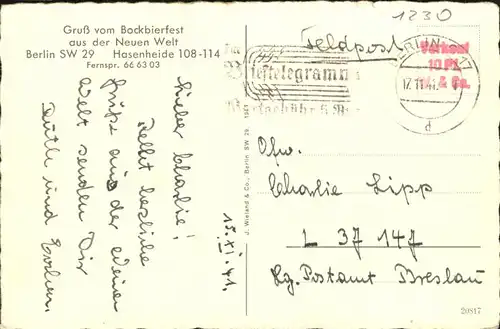 Gruß vom Bockbierfest
aus der Neuen Welt
Berlin SW 29 Hasenheide 108-114
Fernspr. 66 63 03
15. XI. 41.
Lieber Charlie!
Recht herzliche
Grüße aus der Neuen
Welt senden Dir
Ruth und
J. Wieland & Co., Berlin SW 29, 1941
1230
Feldpost
Brieftelegramm
BERLIN
17.11.41
d
Verkauf
10 Pf.
W. & Co.
Ofw.
Charlie Lipp
L 37 147
Lg. Postamt Breslau
20817